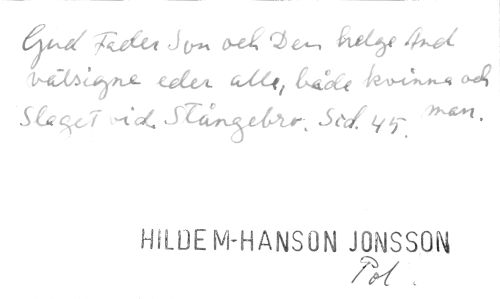 Gud Fader Son och Den helge And
välsigne eder alle, både kvinna och
man.
Slaget vid Stångebro. Sid. 45.
HILDEM-HANSON JONSSON
Pol.